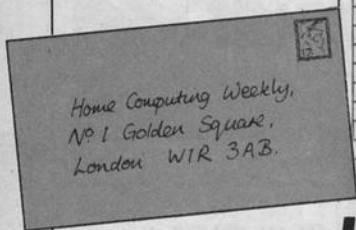 Home Computing Weekly,
Nº 1 Golden Square,
London W1R 3AB.